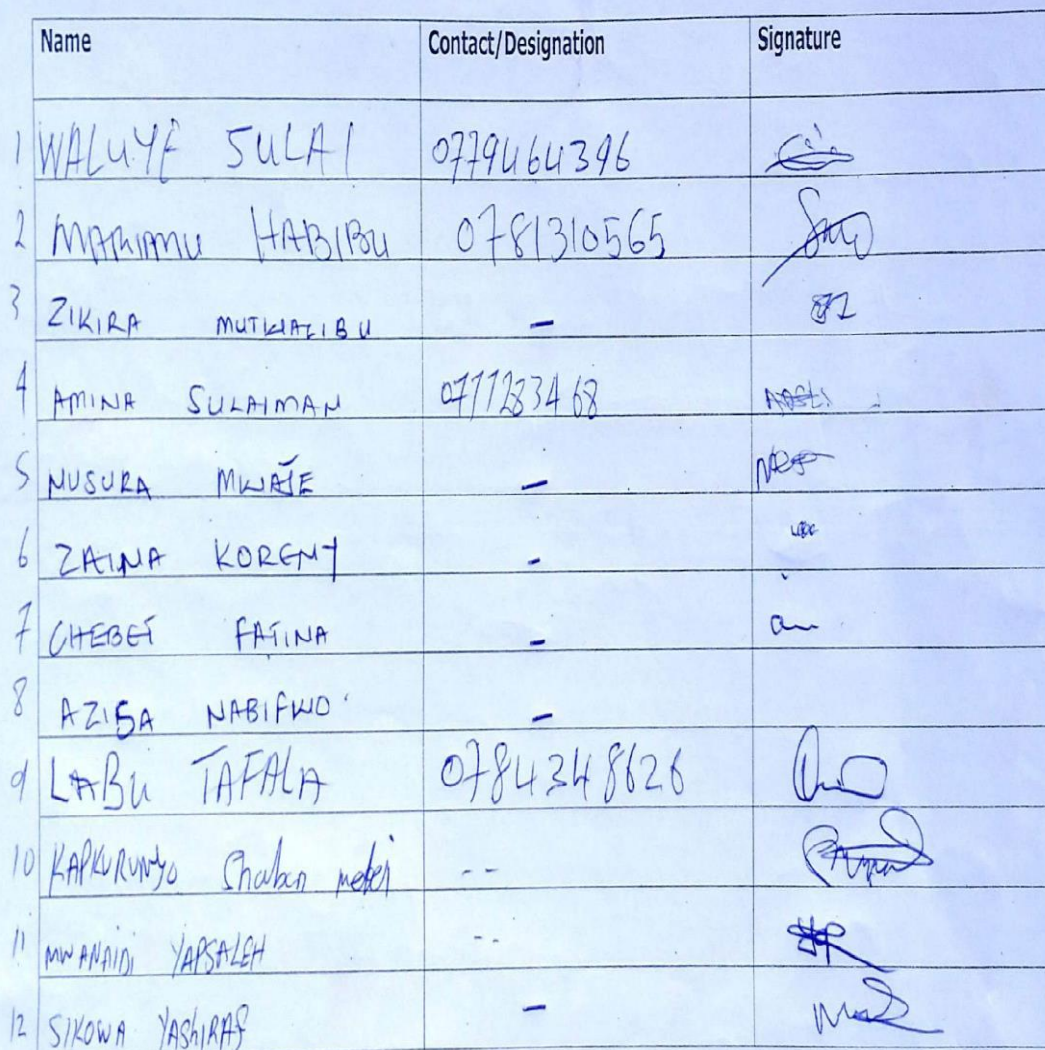 Name Contact/Designation Signature
1 WALUYE SULAI 0779464396
2 MARIAMU HABIBU 0781310565
3 ZIKIRA MUTWALIBU -
4 AMINA SULAIMAN 0777283468
5 NUSURA MWAJE -
6 ZAINA KOREMY -
7 CHEBET FATINA -
8 AZIBA NABIFWO -
9 LABU TAFALA 0784348626
10 KAPKURUNYO Shaban --
11 MWANAIDI YAPSALEH --
12 SIKOWA YASHIRAF -